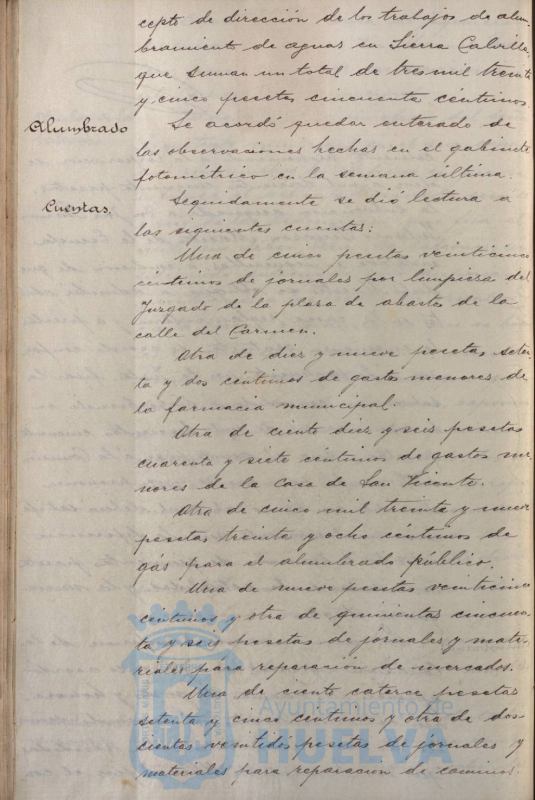 cepto de dirección de los trabajos de alum
bramiento de aguas en Sierra Calvilla,
que suman un total de tres mil treinta
y cinco pesetas cincuenta céntimos.
Alumbrado
Se acordó quedar enterado de
las observaciones hechas en el gabinete
fotométrico en la semana última.
Cuentas.
Seguidamente se dió lectura a
las siguientes cuentas:
Una de cinco pesetas veinticinco
céntimos de jornales por limpieza del
Juzgado de la plaza de abastos de la
calle del Carmen.
Otra de diez y nueve pesetas seten
ta y dos céntimos de gastos menores de
la farmacia municipal.
Otra de ciento diez y seis pesetas
cuarenta y siete céntimos de gastos me
nores de la Casa de San Vicente.
Otra de cinco mil treinta y nueve
pesetas treinta y ocho céntimos de
gás para el alumbrado público.
Una de nueve pesetas veinticinco
céntimos y otra de quinientas cincuen
ta y seis pesetas de jornales y mate
riales para reparación de mercados.
Una de ciento catorce pesetas
setenta y cinco centimos y otra de dos
cientas veintidos pesetas de jornales y
materiales para reparación de caminos.
Ayuntamiento de
HUELVA